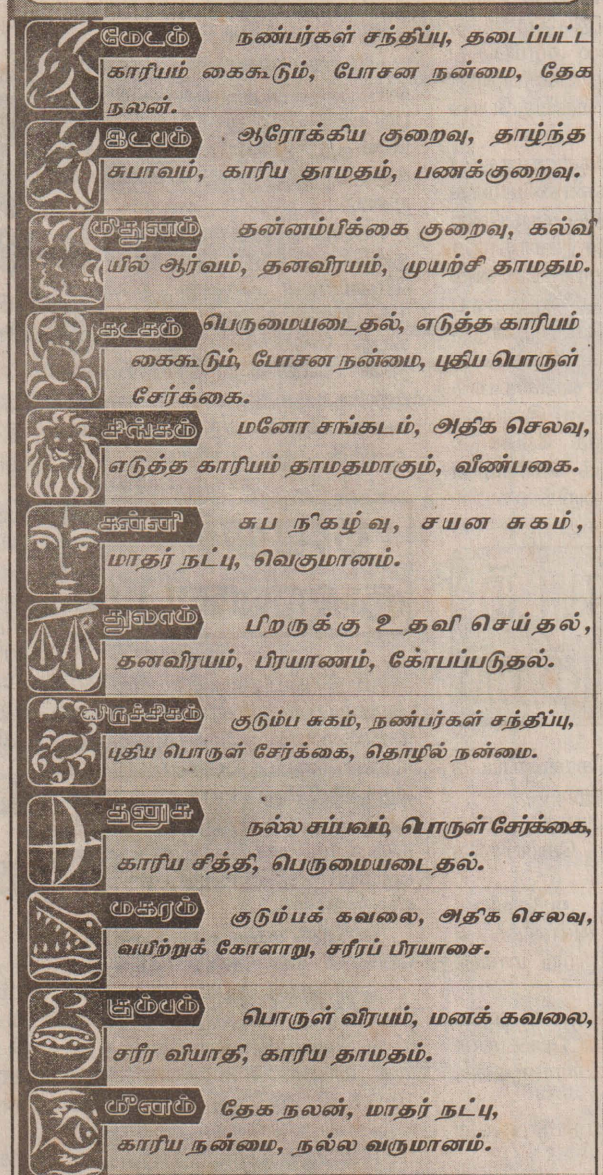 மேடம் நண்பர்கள் சந்திப்பு, தடைப்பட்ட
காரியம் கைகூடும், போசன நன்மை, தேக
நலன்.
இடபம் ஆரோக்கிய குறைவு, தாழ்ந்த
சுபாவம், காரிய தாமதம், பணக்குறைவு.
மிதுனம் தன்னம்பிக்கை குறைவு, கல்வி
யில் ஆர்வம், தனவிரயம், முயற்சி தாமதம்.
கடகம் பெருமையடைதல், எடுத்த காரியம்
கைகூடும், போசன நன்மை, புதிய பொருள்
சேர்க்கை.
சிங்கம் மனோ சங்கடம், அதிக செலவு,
எடுத்த காரியம் தாமதமாகும், வீண்பகை.
கன்னி சுப நிகழ்வு, சயன சுகம்,
மாதர் நட்பு, வெகுமானம்.
துலாம் பிறருக்கு உதவி செய்தல்,
தனவிரயம், பிரயாணம், கோபப்படுதல்.
விருச்சிகம் குடும்ப சுகம், நண்பர்கள் சந்திப்பு,
புதிய பொருள் சேர்க்கை, தொழில் நன்மை.
தனுசு நல்ல சம்பவம், பொருள் சேர்க்கை,
காரிய சித்தி, பெருமையடைதல்.
மகரம் குடும்பக் கவலை, அதிக செலவு,
வயிற்றுக் கோளாறு, சரீரப் பிரயாசை.
கும்பம் பொருள் விரயம், மனக் கவலை,
சரீர வியாதி, காரிய தாமதம்.
மீனம் தேக நலன், மாதர் நட்பு,
காரிய நன்மை, நல்ல வருமானம்.